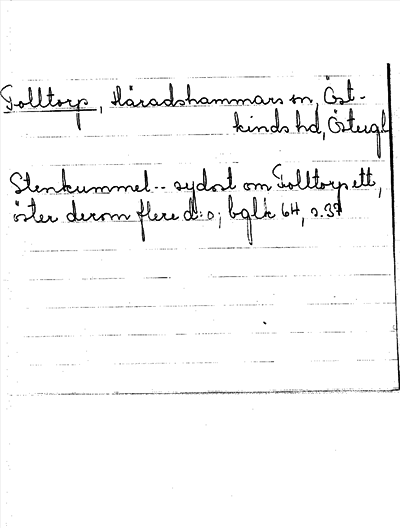 Tolltorp, Häradshammars sn, Öst-
kinds hd, Östergl
Stenkummel -- sydost om Tolltorps ett,
öster derom flere d:o; bglk 64, s. 37